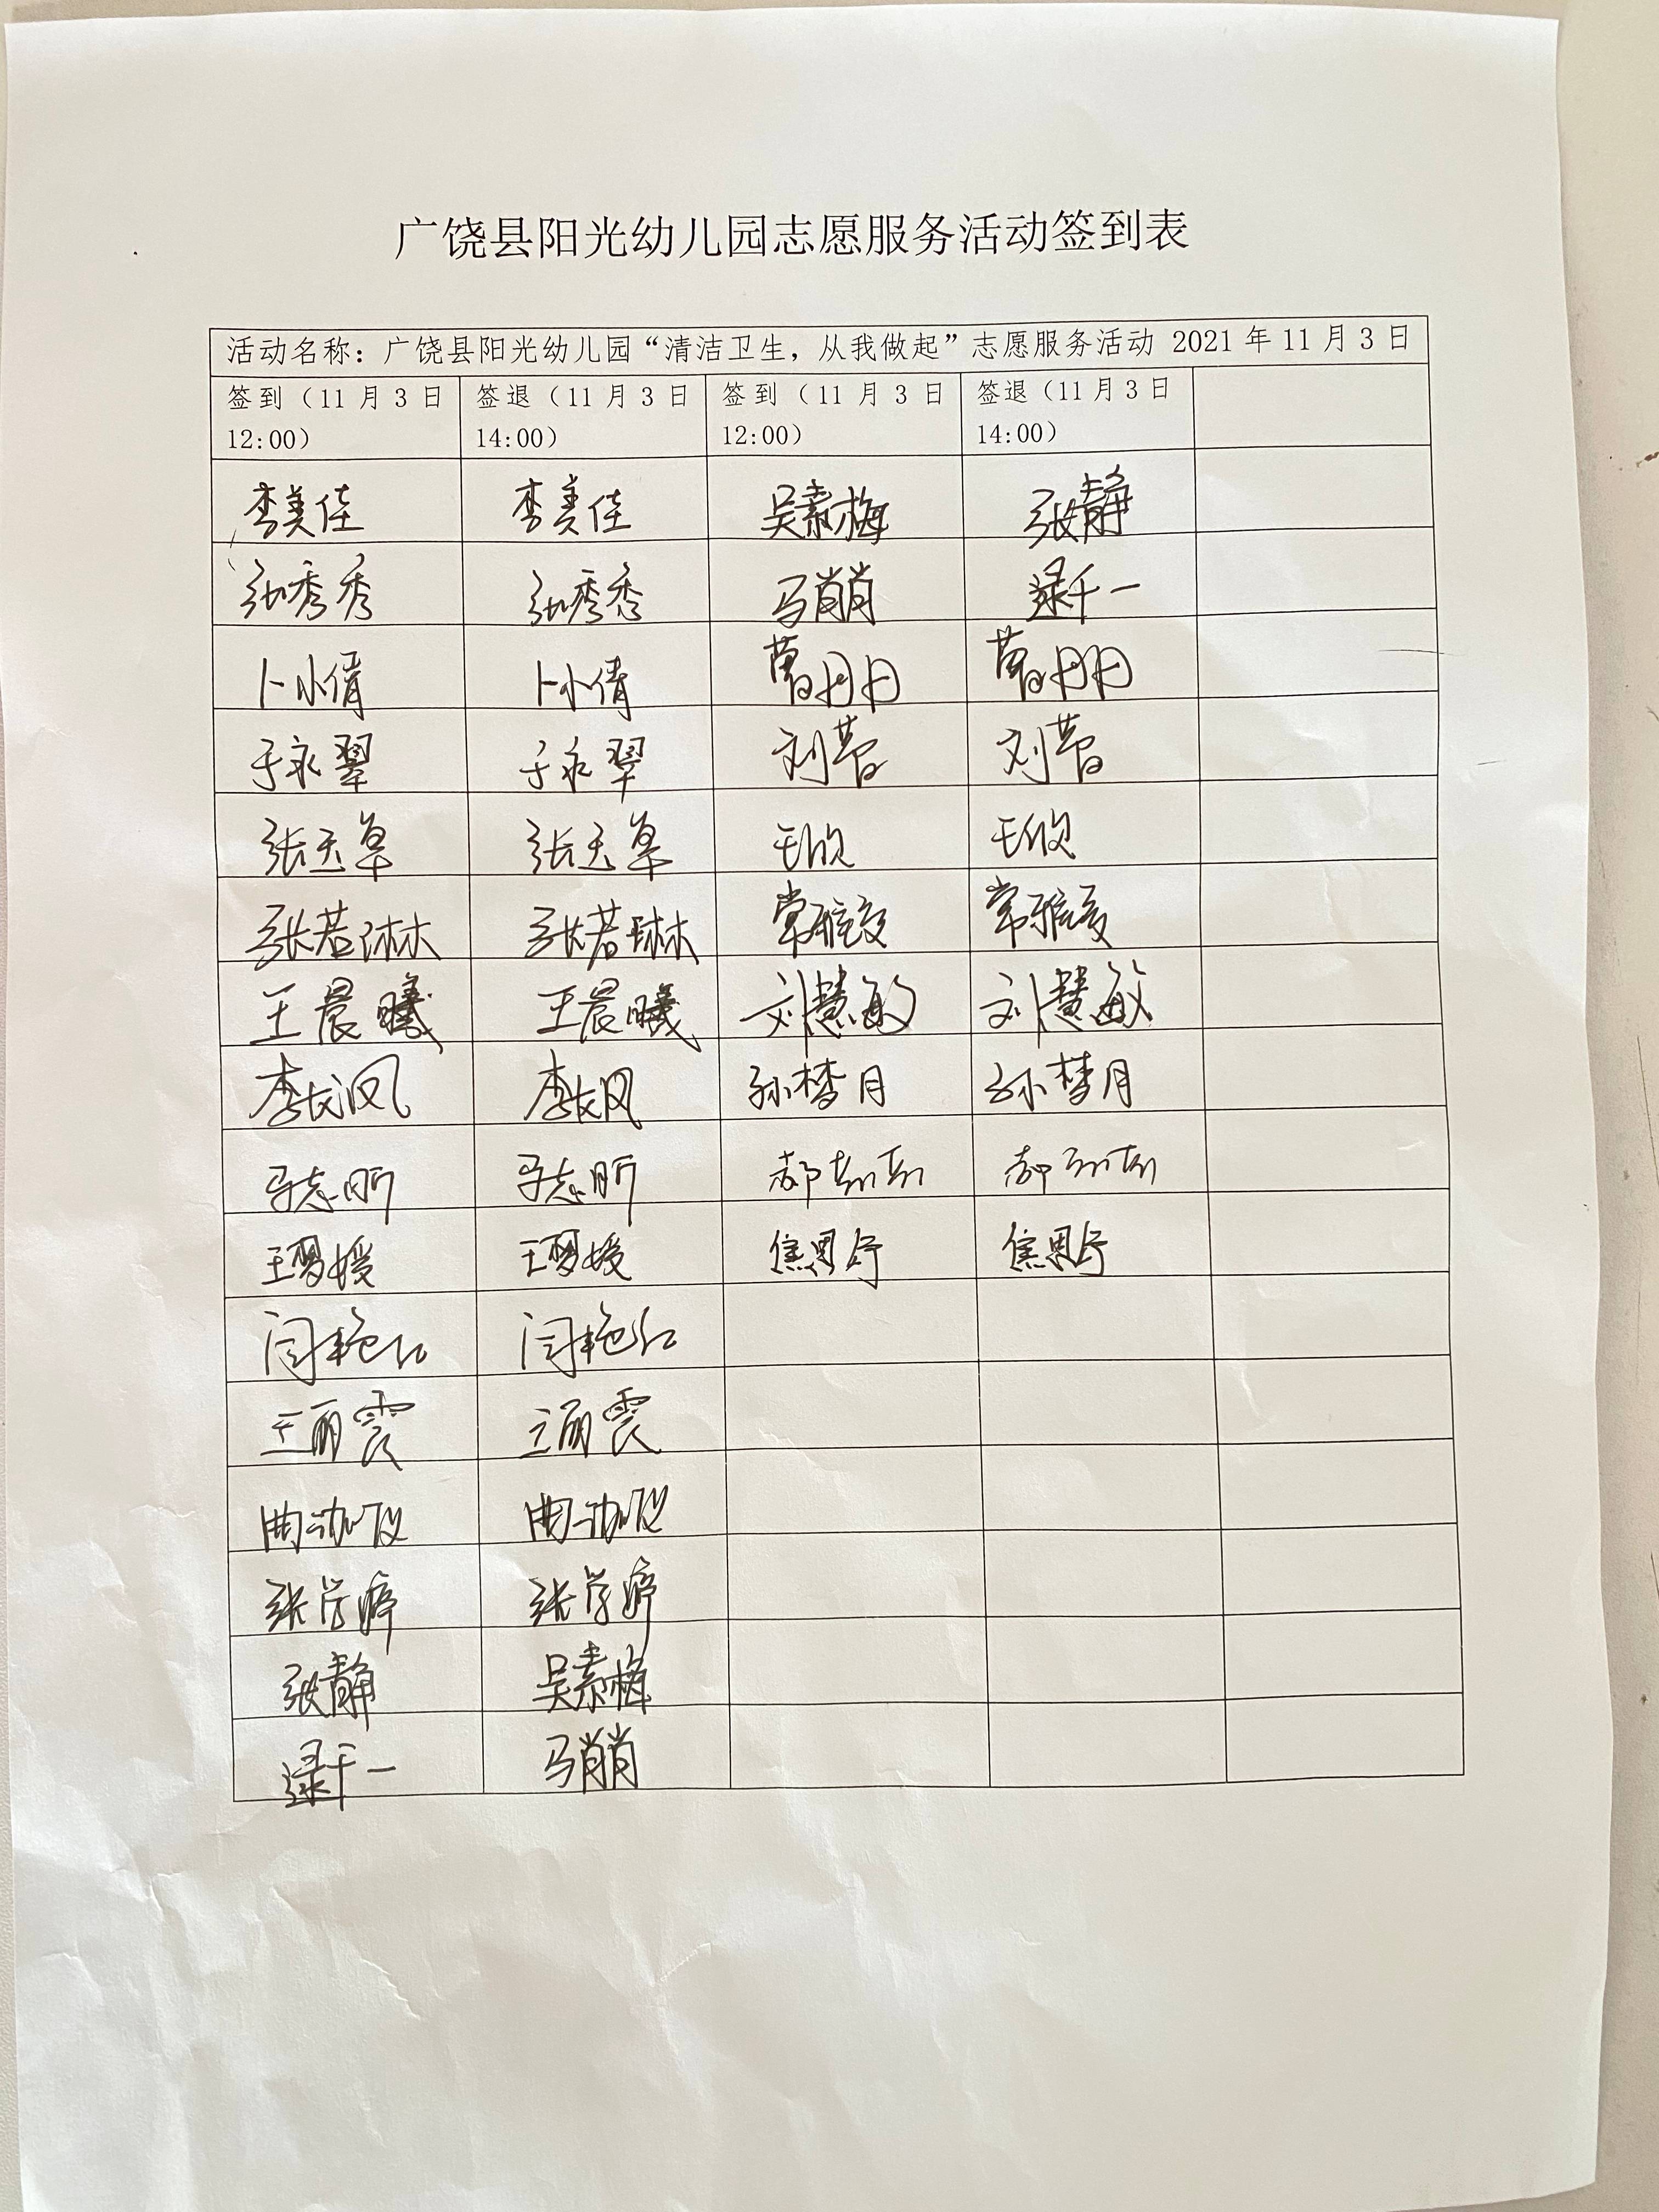 广饶县阳光幼儿园志愿服务活动签到表
活动名称：广饶县阳光幼儿园“清洁卫生，从我做起”志愿服务活动 2021 年 11 月 3 日
签到（11 月 3 日 12:00） 签退（11 月 3 日 14:00） 签到（11 月 3 日 12:00） 签退（11 月 3 日 14:00）
李美佳 李美佳 吴素梅 张静
张秀秀 张秀秀 马肖肖 逯千一
卜小倩 卜小倩 曹丹丹 曹丹丹
于永翠 于永翠 刘蕾 刘蕾
张玉草 张玉草 王欣 王欣
张若琳 张若琳 常雅雯 常雅雯
王晨曦 王晨曦 刘慧敏 刘慧敏
李成凤 李成凤 孙梦月 孙梦月
马志昕 马志昕 郝
王梦媛 王梦媛 焦思雨 焦思雨
闫艳红 闫艳红
王丽霞 王丽霞
曲泇仪 曲泇仪
张学婷 张学婷
张静 吴素梅
逯千一 马肖肖